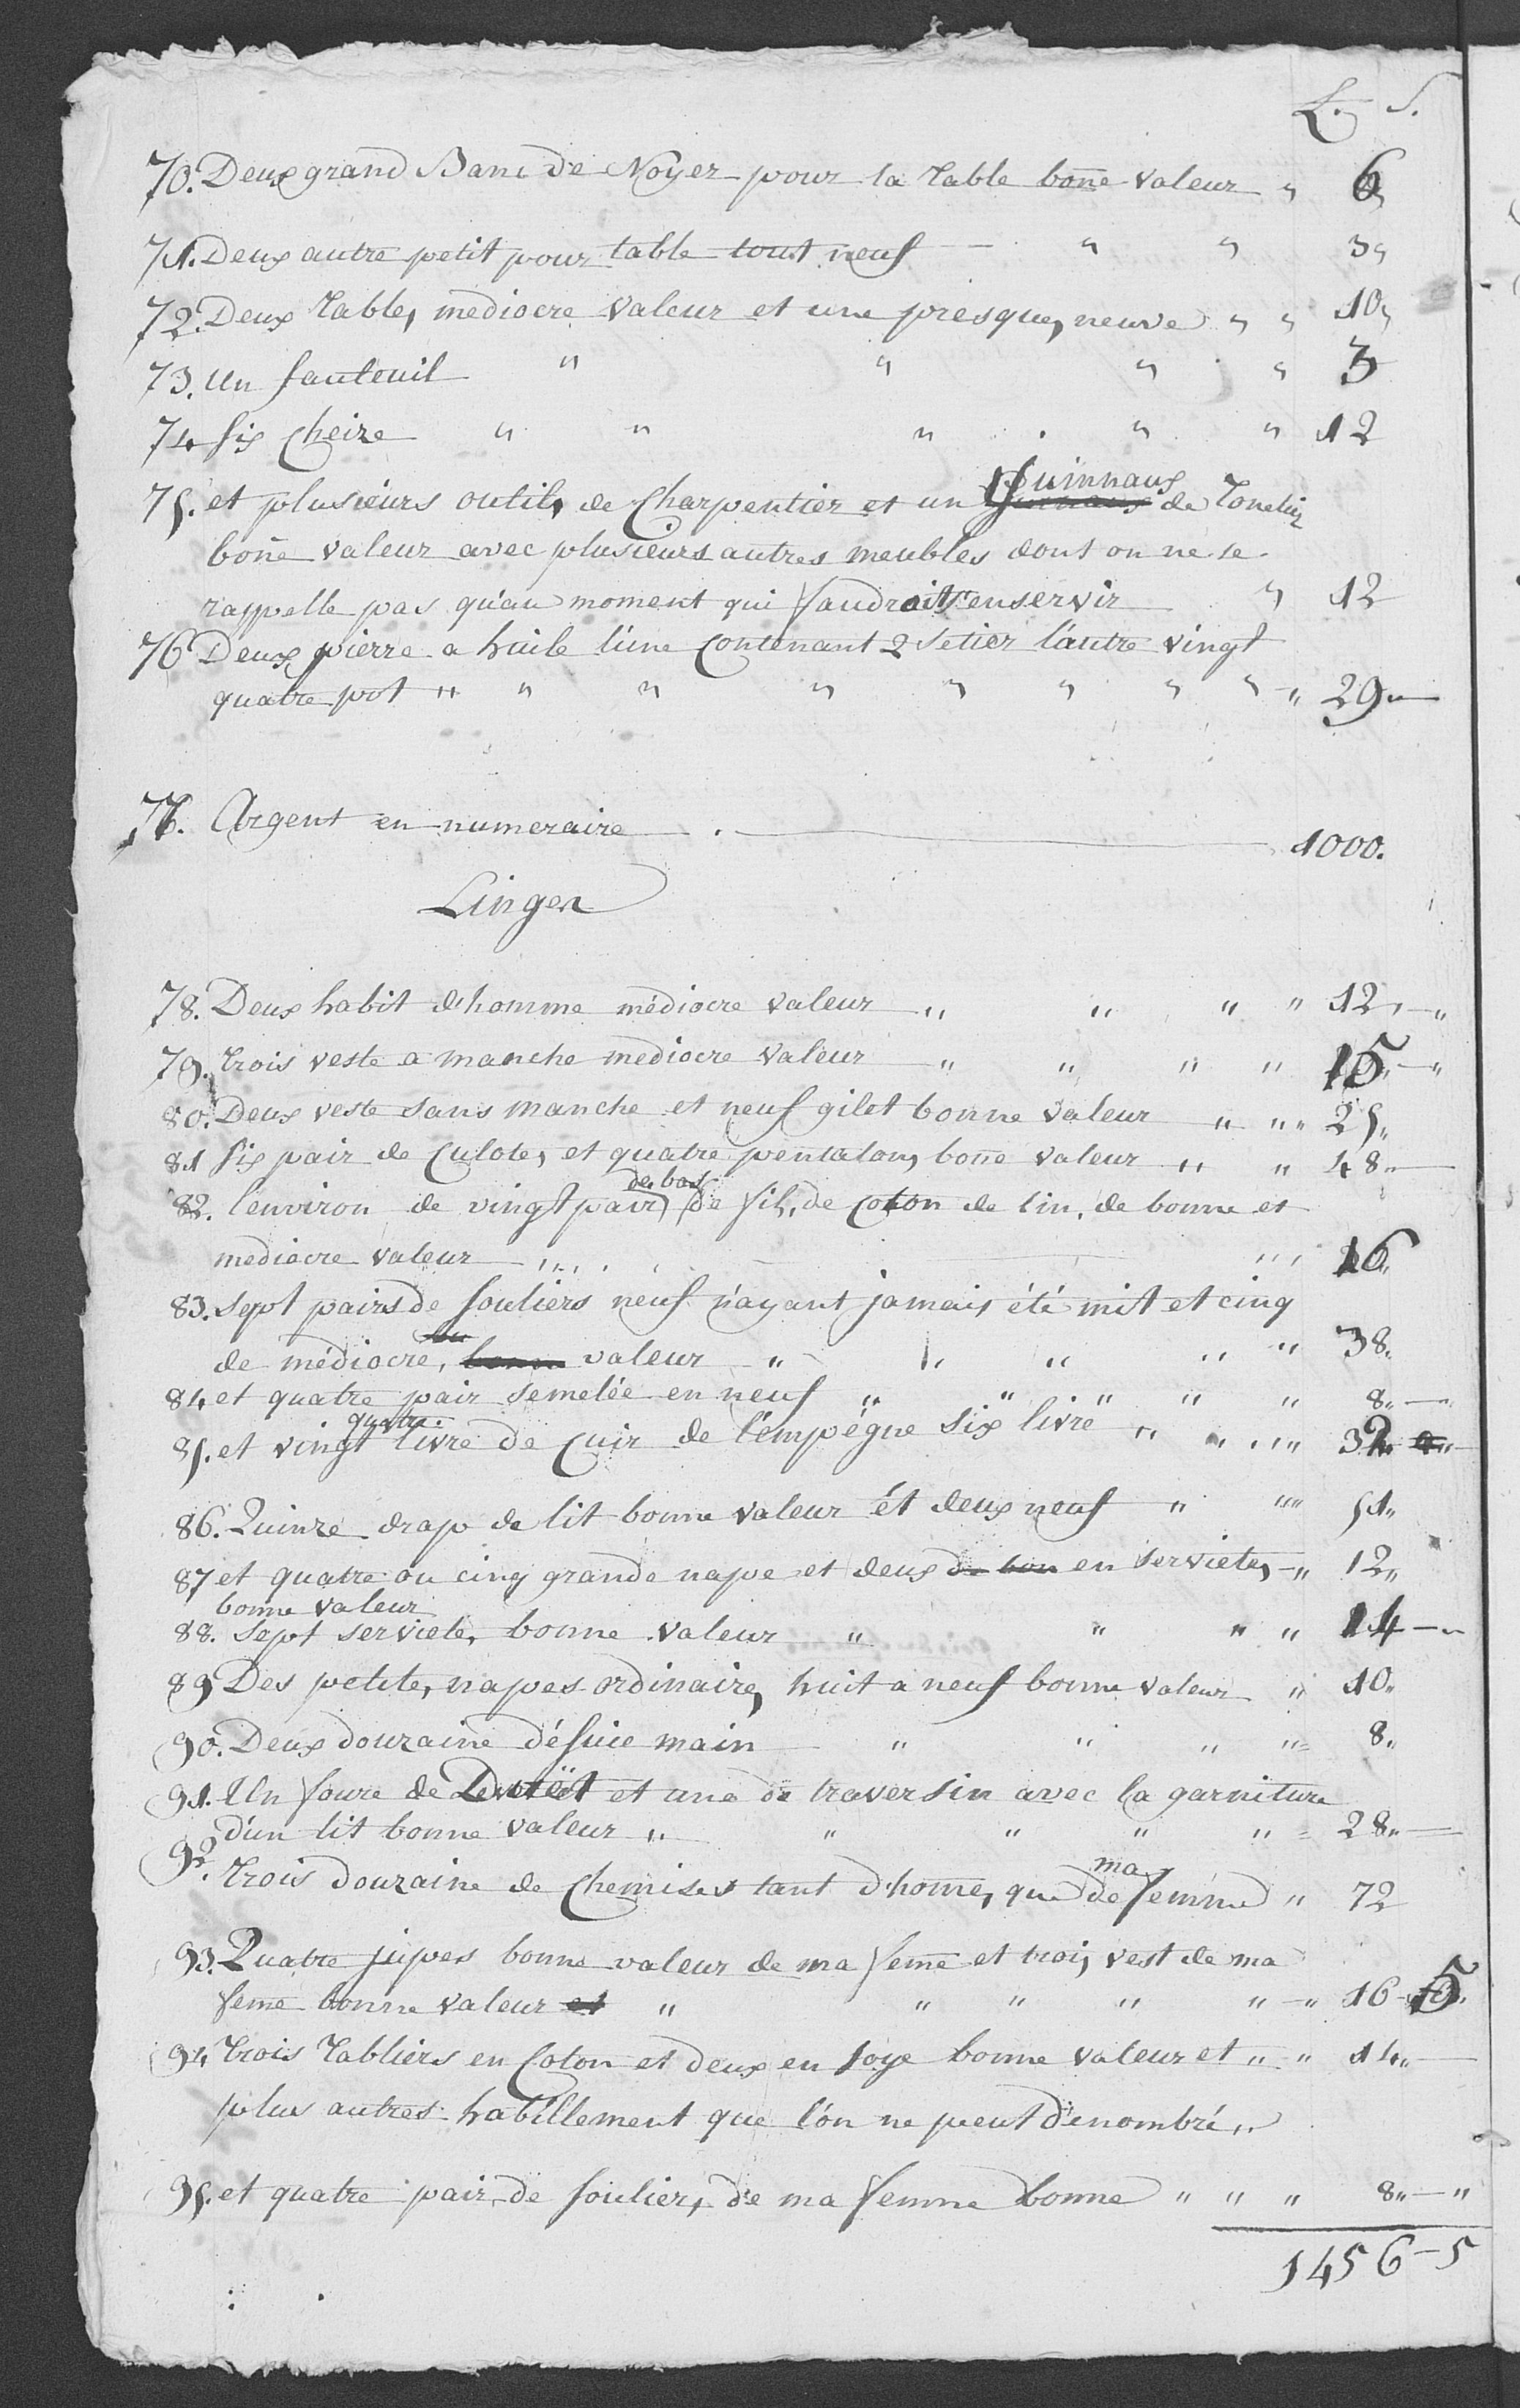 L. S.
70. Deux grand Banc de Noyer pour la table bone valeur " 6 "
71. Deux autre petit pour table tout neuf - " " 3 "
72. Deux table, mediocre valeur et une presque, neuve " " 10 "
73. un fauteuil " " " " 3
74 six Cheize " " " " " 12
75. et plusieurs outils de Charpentier et un Guinnaux de Tonelier
bone valeur avec plusieurs autres meubles dont on ne se
rappelle pas qu'au moment qui faudroit s'enservir " 12
76 Deux pierre a huile l'une Contenant 2 setier l'autre vingt
quatre pot " " " " " " " " " 29 "
77. Argent en numeraire . 1000.
Linges
78. Deux habit d'homme médiocre valeur " " " " 12 " - "
79. trois veste a manche mediocre valeur " " " " 15 " - "
80. Deux veste sans manche et neuf gilet bonne valeur " " " 25 "
81 six pair de Culote, et quatre pentalon, bone valeur " " 48 "
82. l'environ de vingt pair de bas de fil, de coton de lin, de bonne et
mediocre valeur " " 16 "
83. sept pairs de souliers neuf n'ayant jamais été mit et cinq
de médiocre, valeur " " " " " 38 "
84 et quatre pair semelée en neuf " " " " " 8 " - "
85. et vingt quatre livre de Cuir de l'empégne six livre " " " " 32 "
86. Quinze drap de lit bonne valeur et deux neuf " " " 51 "
87 et quatre ou cinq grande nape et deux de bon en serviete, - " 12 "
bonne valeur
88. sept serviete, bonne valeur " " " " 14 - "
89 Des petite, napes ordinaire, huit a neuf bonne valeur " 10 "
90. Deux douzaine désuie main " " " " 8 "
91. Un foure de Duvëet et une de traversin avec la garniture
d'un lit bonne valeur " " " " " 28 "
92. trois douzaine de Chemises tant d'home, que de ma femme " 72
93. Quatre jupes bonne valeur de ma feme et trois vest de ma
feme bonne valeur et " " " " " - " 16 - 5
94 trois tabliers en Coton et deux en soye bonne valeur et " " 14 "
plus autres habillement que l'on ne peut dénombré "
95. et quatre pair de soulier, de ma femme bonne " " " 8 " - "
1456 - 5